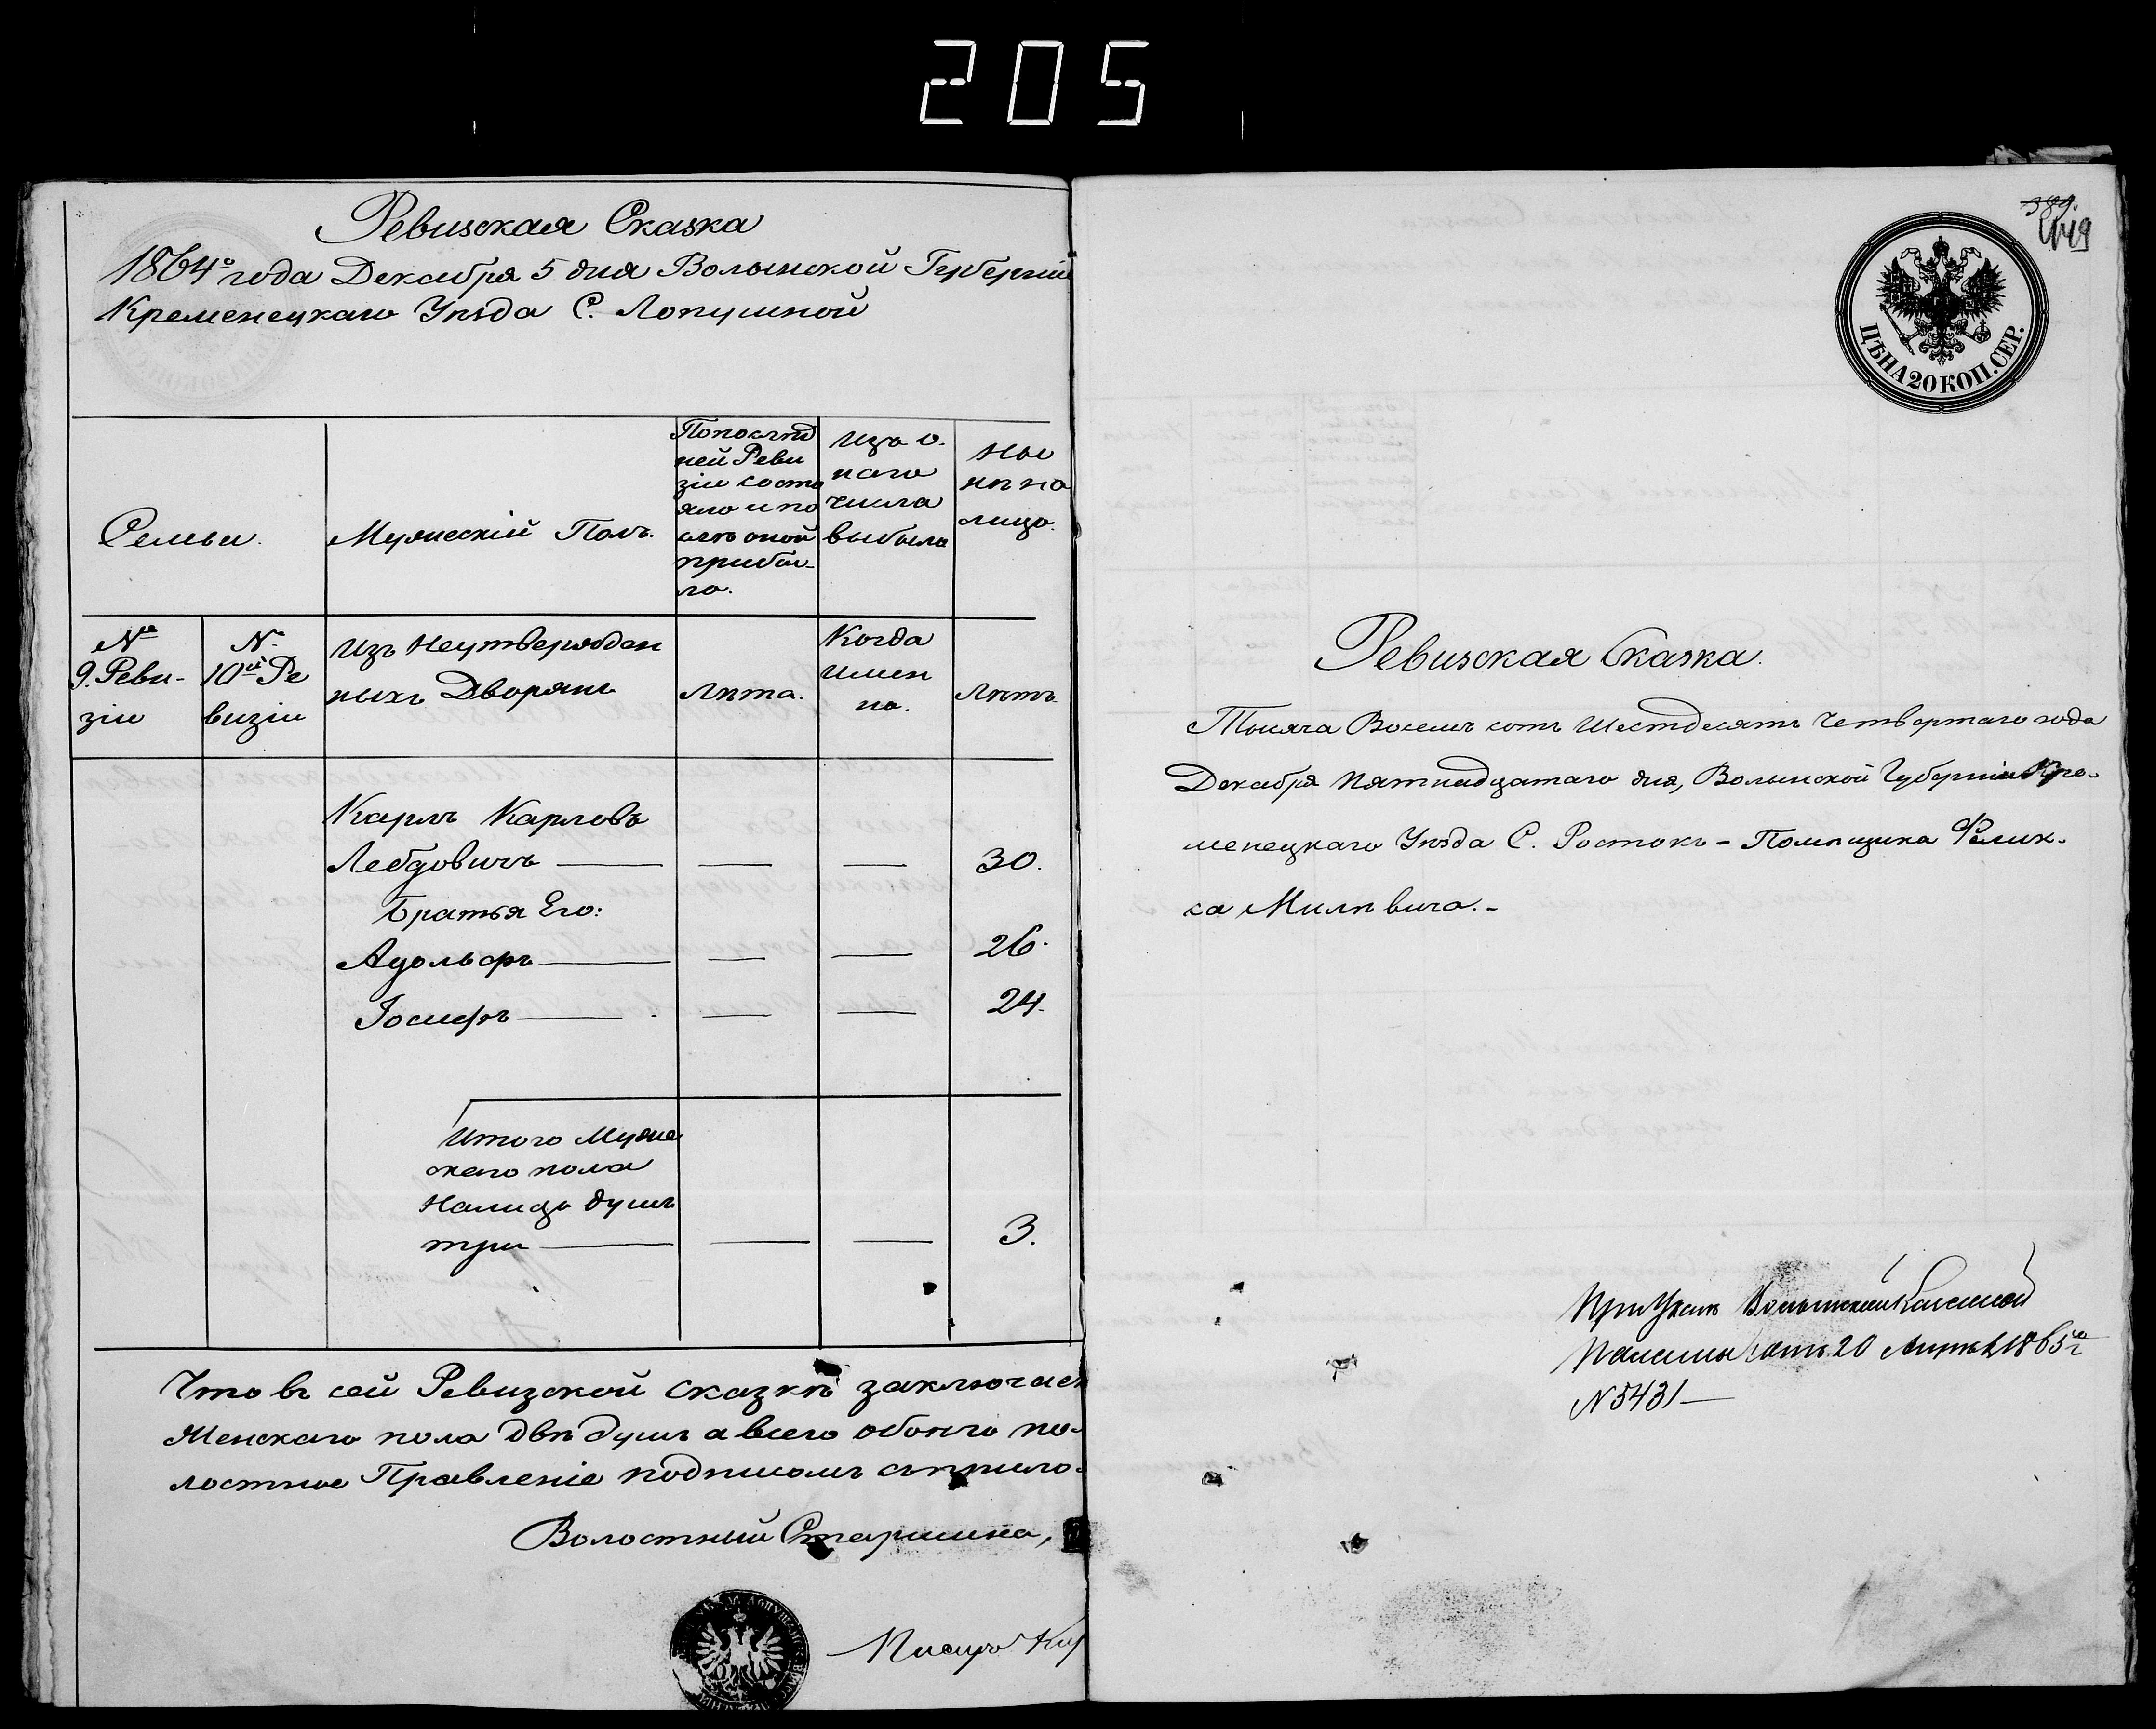 205
Ревизская Сказка
1864го года Декабря 5 дня Волынской Губерніи
Кременецкаго Уѣзда С. Лопушной
Семьи.
Мужескій Полъ.
По послѣд
ней Реви
зіи состо
яло и по
слѣ оной
прибы-
ло.
Изъ о.
наго
числа
выбыло
Ны
нѣ на
лицо.
№
9. Реви-
зіи
№
10й Ре
визіи
Изъ Неутвержден
ныхъ Дворянъ
Лѣта.
Когда
имен
но.
Лѣтъ.
Карлъ Карловъ
30.
Братья Его:
Адольфъ 26.
Іосифъ 24.
Итого Муже
скаго пола
Налицо душъ
три 3.
Что въ сей Ревизской сказкѣ заключает
Женскаго пола двѣ душъ а всего обоего по-
лостное Правленіе подписомъ съ прило-
Волостный Старшина,
Писарь
389.
ЦѢНА 20 КОП. СЕР.
Ревизская Сказка.
Тысяча Восемь сотъ Шестдесятъ Четвертаго года
Декабря Пятнадцатаго дня, Волынской Губерніи Кре-
менецкаго Уѣзда С. Ростокъ – Помѣщика Фелик-
са Милѣвича. –
При Указѣ Волынской Казенной
Палаты отъ 20 Апрѣля 1865 г
№ 5431 —